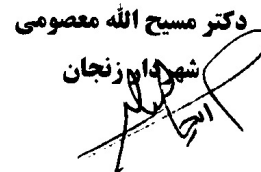 دکتر مسیح الله معصومی
شهردار زنجان